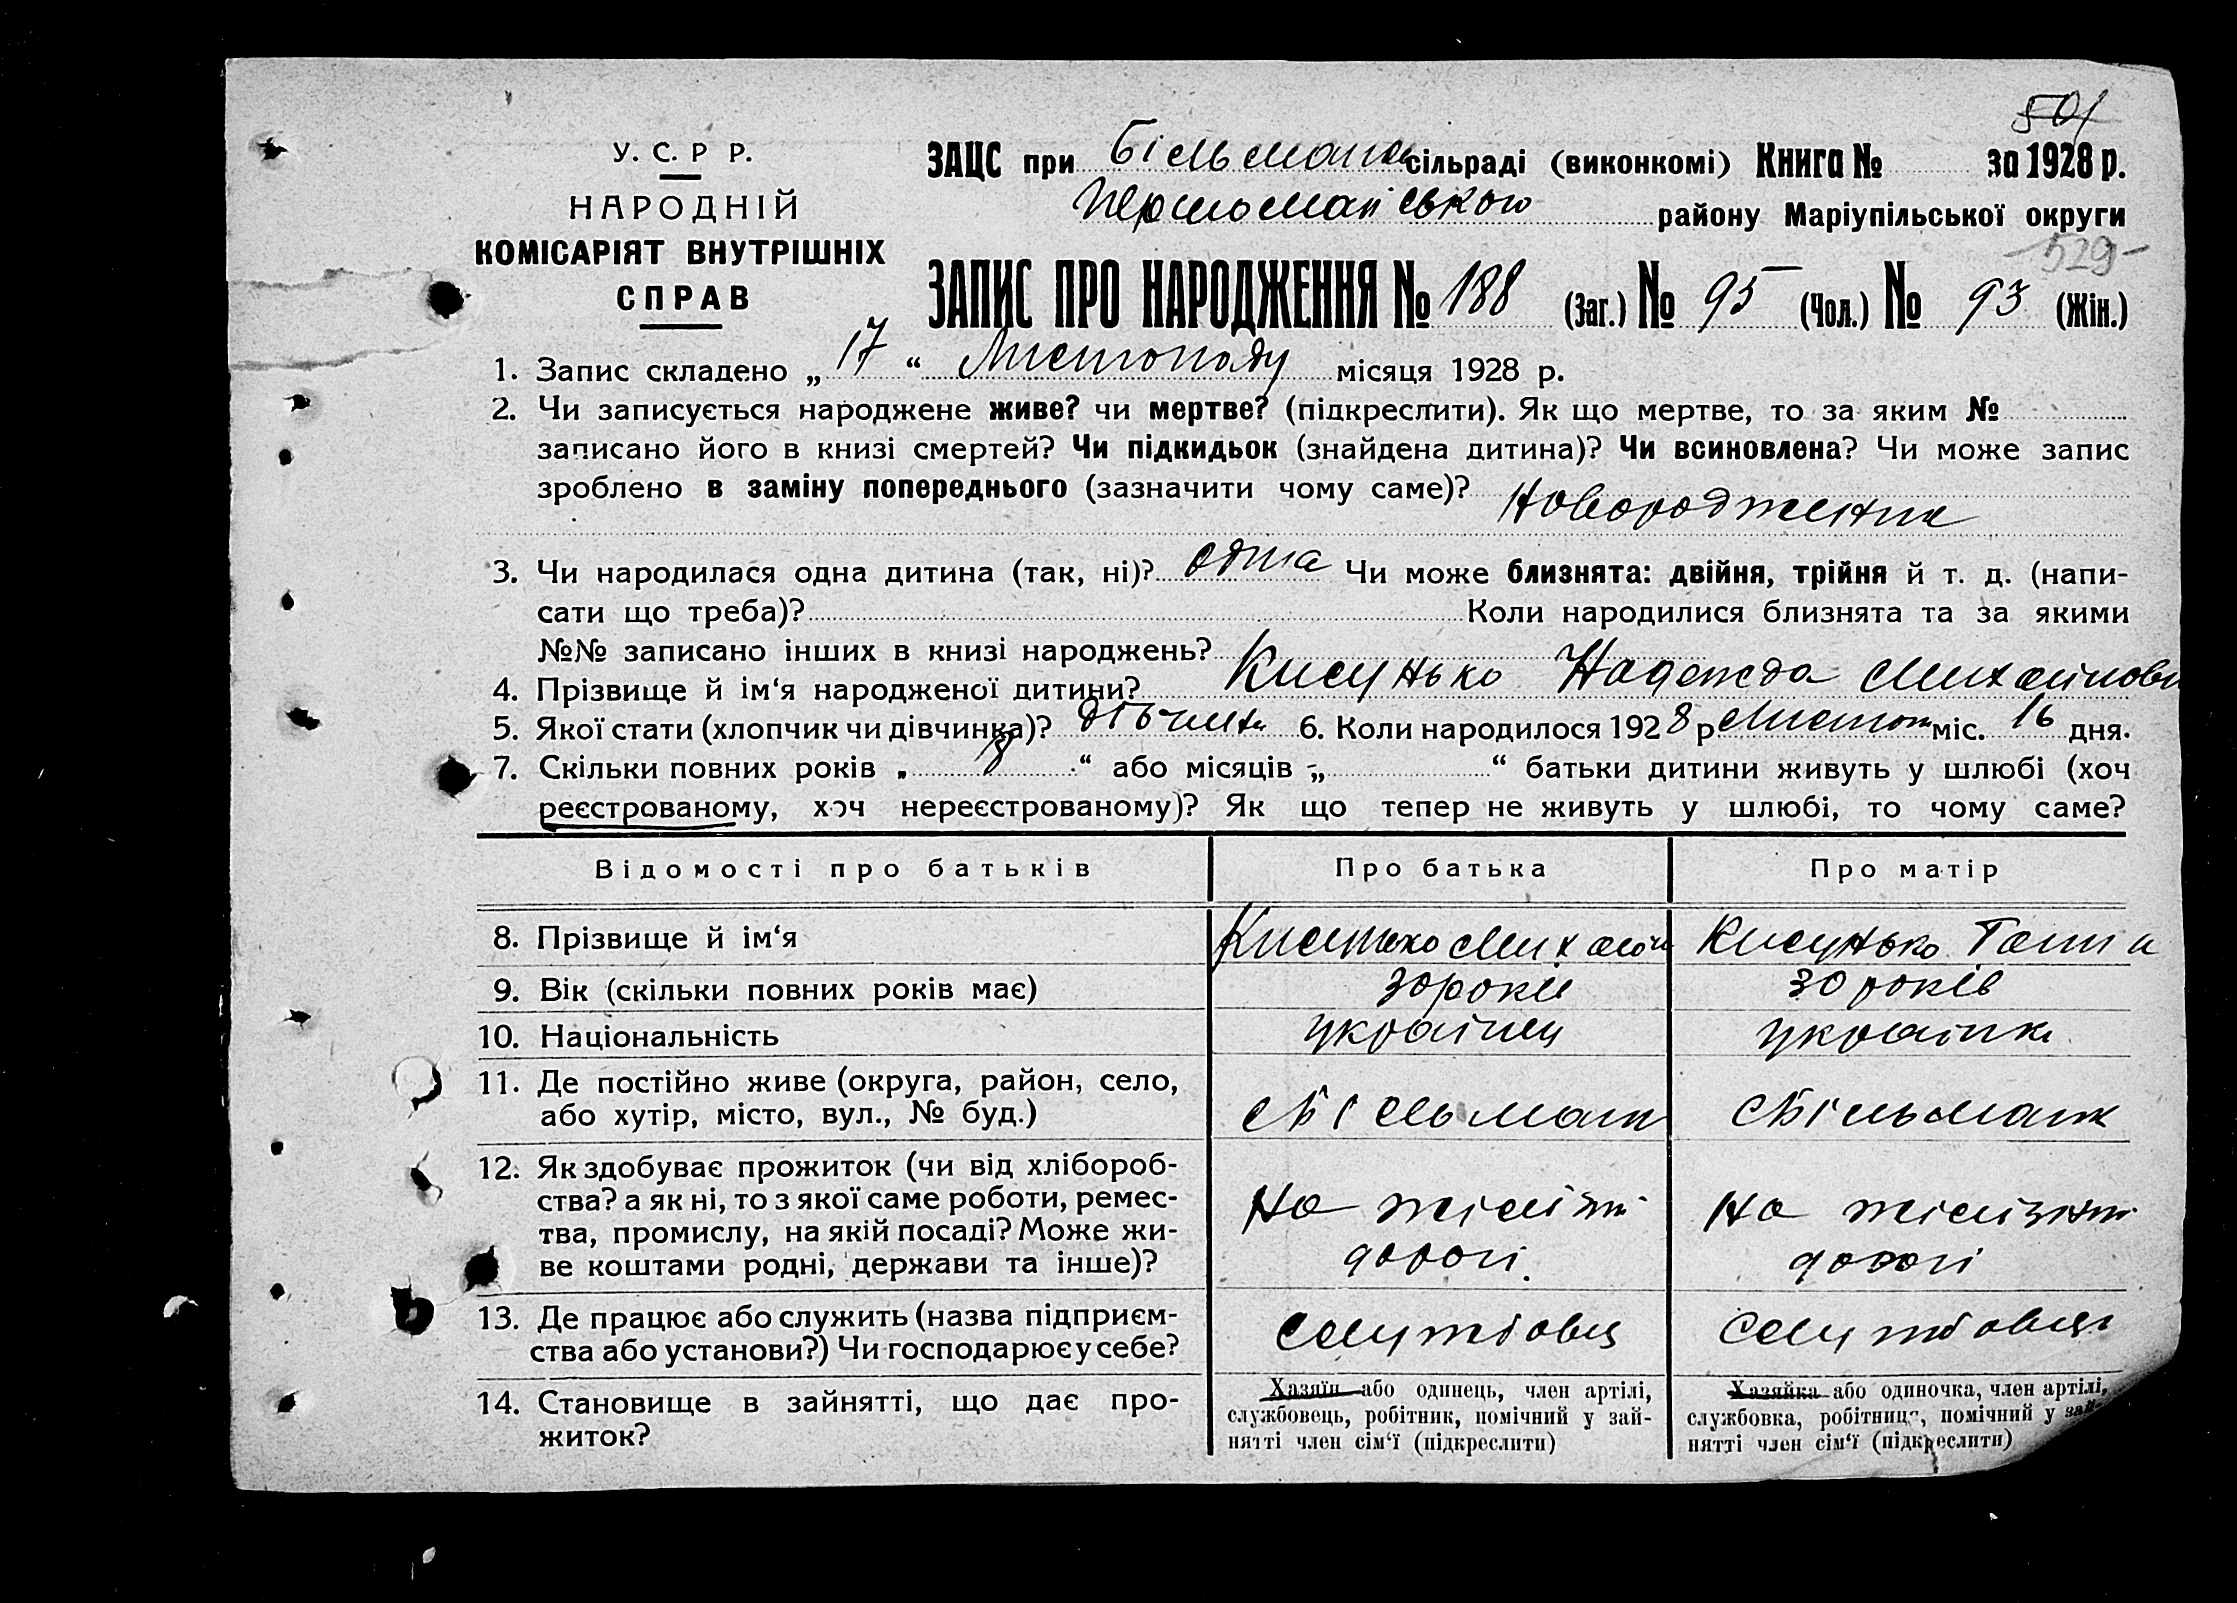 501
У. С. Р Р.
НАРОДНІЙ
КОМІСАРІЯТ ВНУТРІШНІХ
СПРАВ
ЗАЦС при Більмань сільраді (виконкомі) Книга № за 1928 р.
Першомайського району Маріупільської округи
529
ЗАПИС ПРО НАРОДЖЕННЯ № 188 (Заг.) № 95 (Чол.) № 93 (Жін.)
1. Запис складено „ 17 “ Листопаду місяця 1928 р.
2. Чи записується народжене живе? чи мертве? (підкреслити). Як що мертве, то за яким №
записано його в книзі смертей? Чи підкидьок (знайдена дитина)? Чи всиновлена? Чи може запис
зроблено в заміну попереднього (зазначити чому саме)?
3. Чи народилася одна дитина (так, ні)? одна Чи може близнята: двійня, трійня й т. д. (напи-
сати що треба)? Коли народилися близнята та за якими
№№ записано інших в книзі народжень?
4. Прізвище й ім‘я народженої дитини? Кисунько Надежда Михайлов
5. Якої стати (хлопчик чи дівчинка)? дівчина 6. Коли народилося 1928 р Листоп міс. 16 дня.
7. Скільки повних років „ 8 “ або місяців „ “ батьки дитини живуть у шлюбі (хоч
реєстрованому, хоч нереєстрованому)? Як що тепер не живуть у шлюбі, то чому саме?
Відомості про батьків Про батька Про матір
8. Прізвище й ім‘я Кисунько Михайло Кисунько Ганна
9. Вік (скільки повних років має) 30 років 30 років
10. Національність українец українка
11. Де постійно живе (округа, район, село,
або хутір, місто, вул., № буд.) с Більманк с Більманк
12. Як здобуває прожиток (чи від хлібороб-
ства? а як ні, то з якої саме роботи, ремес-
тва, промислу, на якій посаді? Може жи-
ве коштами родні, держави та інше)?
На залізн
дорогі
На залізн
дорогі
13. Де працює або служить (назва підприєм-
ства або установи?) Чи господарює у себе?
служ
служ
14. Становище в зайнятті, що дає про-
житок?
Хазяїн або одинець, член артілі,
службовець, робітник, помічний у зай-
нятті член сім‘ї (підкреслити)
Хазяйка або одиночка, член артілі,
службовка, робітниця, помічний у зай-
нятті член сім‘ї (підкреслити)